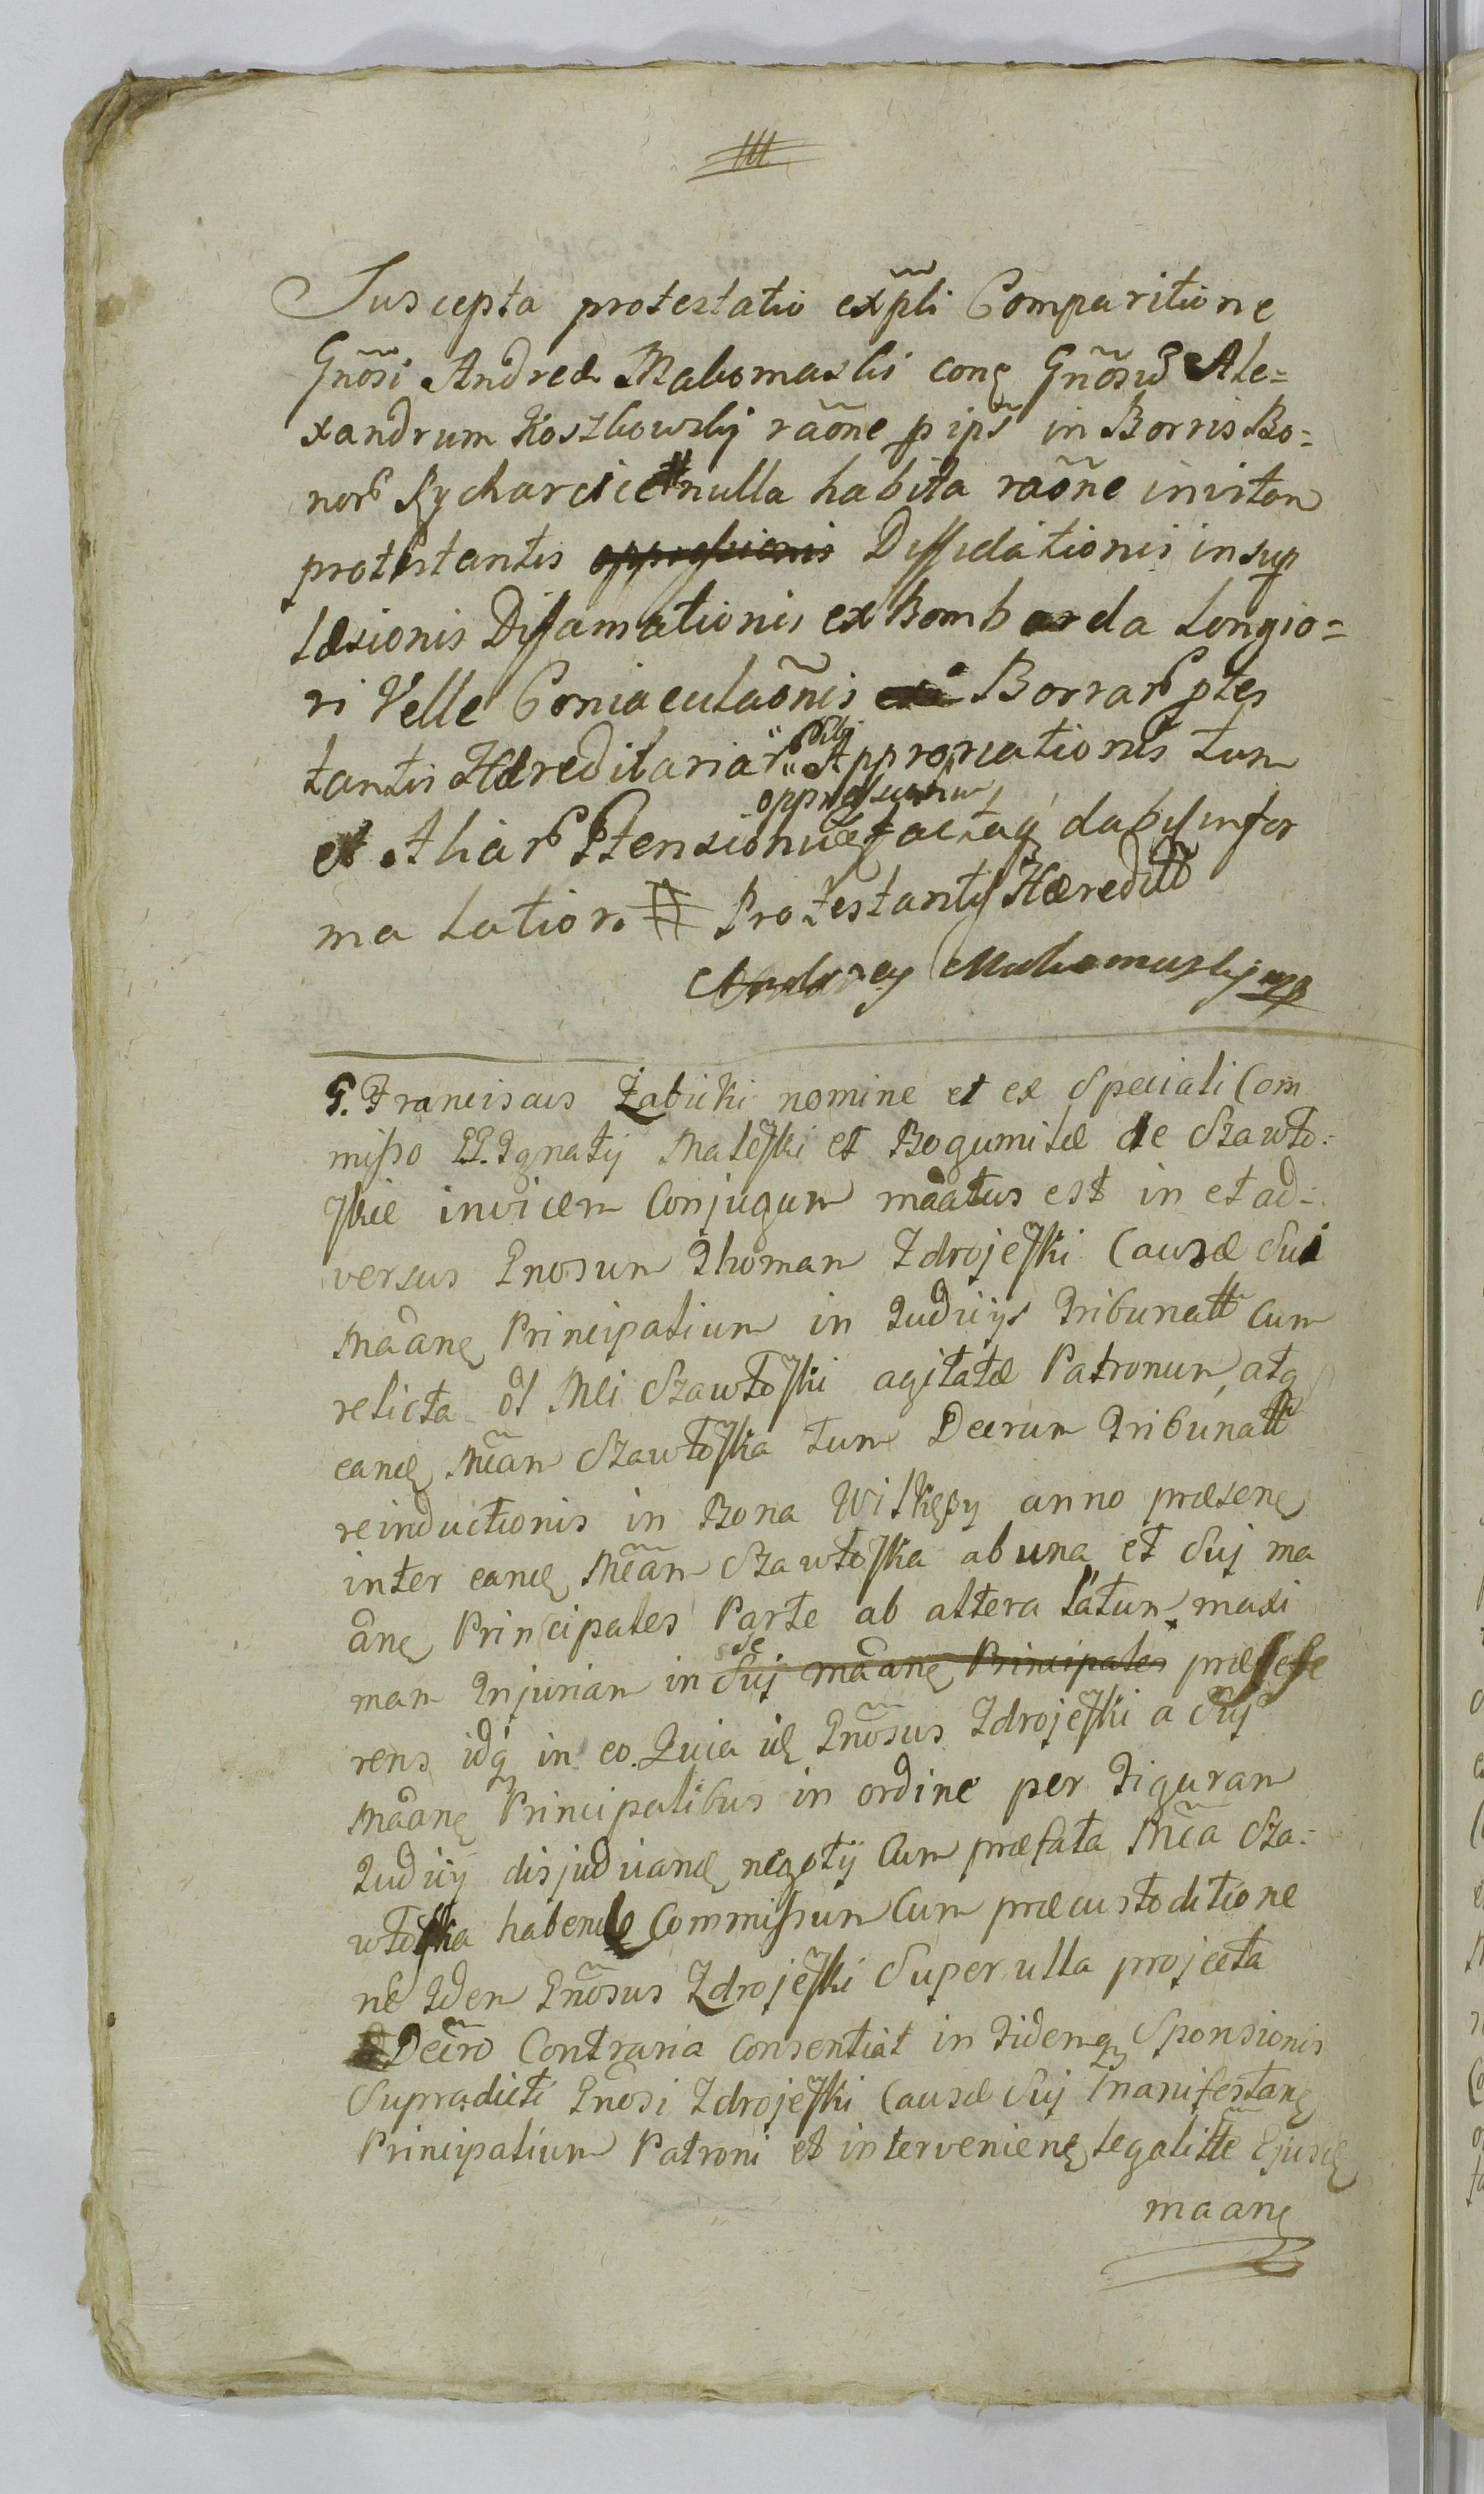 Suscepta protestatio expłi Comparitione
Gnõsi Andreæ Makomaski cong Gnõsũ Ale=
xandrum Koszkowskij raõne p ips in Borris Bo=
norῥ Rycharcice # nulla habita raõne invitan
protestantis Diffidationis insup
Læsionis Diffamationis ex Bombarda Longio=
ri Velle Coniaculaõnis Borrarῥ
tantis Hæreditariarῥ sibi Appropriationis tum
oppressionum
et Aliarῥ Ptensionũ dabit in for
ma Latiori # Protestantis Hæreditt
Andrzey Makomaskij mp
G. Franciscus Zabicki nomine et ex Speciali Com
misso GG. Ignatij Maleſki et Bogumilæ de Szawło=
ſkie invicem Conjugum maatus est in et ad=
versus Gnosum Thomam Zdrojeſki Causæ Sui
Maane Principalium in Judicijs Tribunatt Cum
relicta ol Mei Szawłoſki agitatæ Patronum, atq
eande Mcam Szawłoſka tum Decrum Tribunatt
reinductionis in Bona Wilkępy anno præsene
inter eande Mcam Szawłoſka ab una et Suj ma
ane Principales Parte ab altera latum maxi
mam Injuriam in se Suj maane Principales præsefe
rens idq in eo. Quia id Gnõsus Zdrojeſki a Suis
Maane Principalibus in ordine per Figuram
Judicij disjudicande negotij Cum præfata Mca Sza=
włoſka habende Commissum Cum præcustoditione
ne Idem Gnõsus Zdrojeſki Super ulla projecta
Decro Contraria consentiat in Fidemq Sponsionis
Supradicti Gnosi Zdrojeſki Causæ Suj Manifestane
Principalium Patroni et interveniene legalitte Ejusde
maane